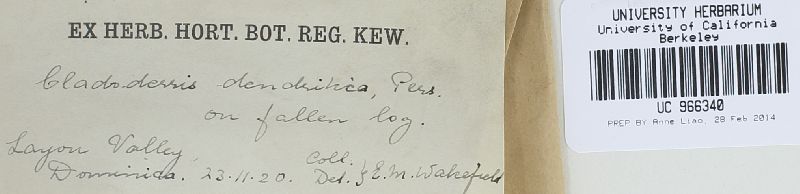 EX HERB. HORT. BOT. REG. KEW.
Cladoderris dendritica, Pers.
on fallen log.
Layou Valley,
Dominica. 23.11.20. Coll. Det. } E.M. Wakefield
UNIVERSITY HERBARIUM
University of California
Berkeley
UC 966340
PREP BY Anne Liao, 28 Feb 2014